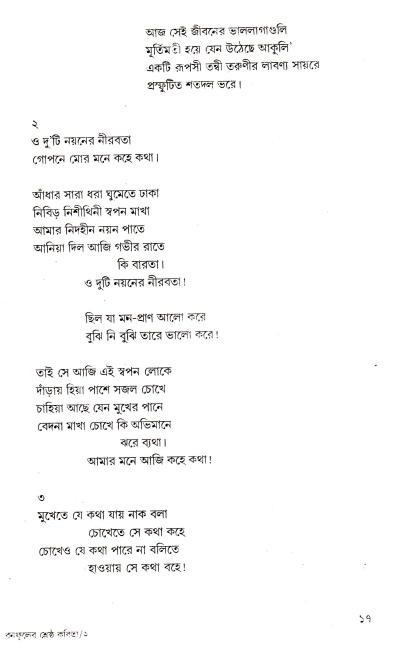 আজ সেই জীবনের ভাললাগাগুলি
মূর্তিমতী হয়ে যেন উঠেছে আকুলি'
একটি রূপসী তন্বী তরুণীর লাবণ্য সায়রে
প্রস্ফুটিত শতদল ভরে।
২
ও দু'টি নয়নের নীরবতা
গোপনে মোর মনে কহে কথা।
আঁধার সারা ধরা ঘুমেতে ঢাকা
নিবিড় নিশীথিনী স্বপন মাখা
আমার নিদহীন নয়ন পাতে
আনিয়া দিল আজি গভীর রাতে
কি বারতা।
ও দুটি নয়নের নীরবতা!
ছিল যা মন-প্রাণ আলো করে
বুঝি নি বুঝি তারে ভালো করে!
তাই সে আজি এই স্বপন লোকে
দাঁড়ায় হিয়া পাশে সজল চোখে
চাহিয়া আছে যেন মুখের পানে
বেদনা মাখা চোখে কি অভিমানে
ঝরে ব্যথা।
আমার মনে আজি কহে কথা!
৩
মুখেতে যে কথা যায় নাক বলা
চোখেতে সে কথা কহে
চোখেও যে কথা পারে না বলিতে
হাওয়ায় সে কথা বহে!
১৭
বনফুলের শ্রেষ্ঠ কবিতা/২